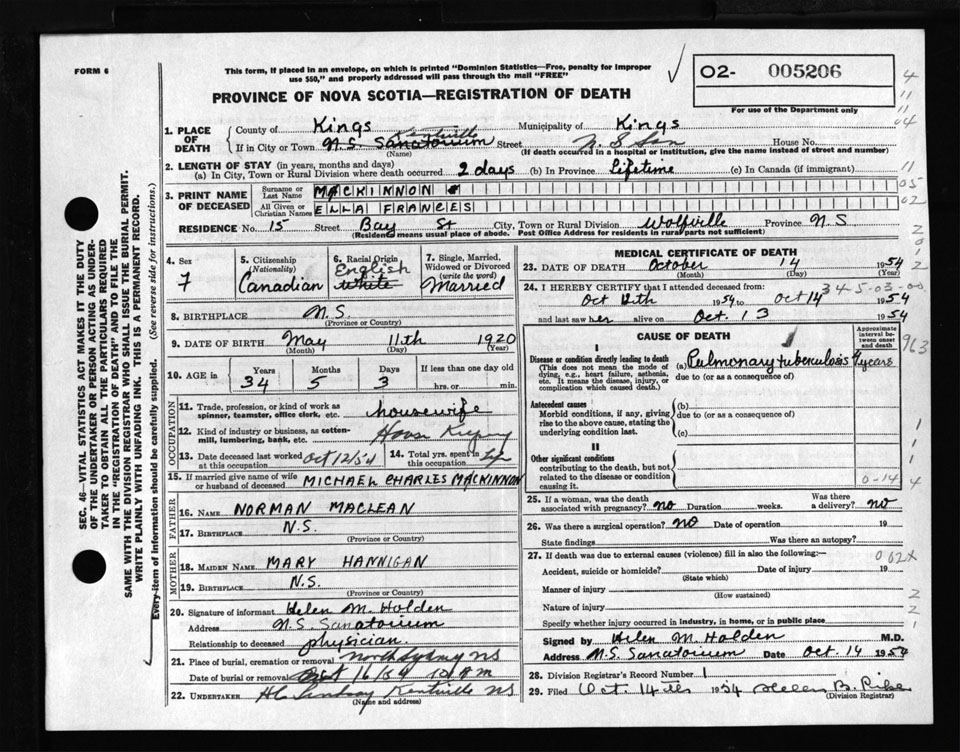 FORM 6
This form, if placed in an envelope, on which is printed "Dominion Statistics—Free, penalty for improper
use $50," and properly addressed will pass through the mail "FREE"
PROVINCE OF NOVA SCOTIA—REGISTRATION OF DEATH
02- 005206
For use of the Department only
4
11
11
04
1. PLACE OF DEATH
County of Kings Municipality of Kings
If in City or Town N.S. Sanatorium Kentville Street N. S. San House No.
(Name) (If death occurred in a hospital or institution, give the name instead of street and number)
2. LENGTH OF STAY (in years, months and days)
(a) In City, Town or Rural Division where death occurred 2 days (b) In Province Lifetime (c) In Canada (if immigrant)
11
05
02
3. PRINT NAME OF DECEASED
Surname or Last Name MACKINNON
All Given or Christian Names ELLA FRANCES
RESIDENCE No. 15 Street Bay St City, Town or Rural Division Wolfville Province N.S
(Residence means usual place of abode. Post Office Address for residents in rural parts not sufficient)
4. Sex
7
5. Citizenship
(Nationality)
Canadian
6. Racial Origin
English
White
7. Single, Married,
Widowed or Divorced
(write the word)
Married
8. BIRTHPLACE N.S.
(Province or Country)
9. DATE OF BIRTH May 11th 1920
(Month) (Day) (Year)
10. AGE in
Years Months Days If less than one day old
34 5 3 hrs. or min.
OCCUPATION
11. Trade, profession, or kind of work as
spinner, teamster, office clerk, etc. housewife
12. Kind of industry or business, as cotton-
mill, lumbering, bank, etc. House Keeping
13. Date deceased last worked
at this occupation Oct 12/54
14. Total yrs. spent in
this occupation
15. If married give name of wife
or husband of deceased MICHAEL CHARLES MACKINNON
FATHER
16. NAME NORMAN MACLEAN
17. BIRTHPLACE N.S.
(Province or Country)
MOTHER
18. MAIDEN NAME MARY HANNIGAN
19. BIRTHPLACE N.S.
(Province or Country)
20. Signature of informant Helen M. Holden
Address N.S. Sanatorium
Relationship to deceased physician.
21. Place of burial, cremation or removal North Sydney NS
Date of burial or removal Oct 16/54 10 AM
22. UNDERTAKER Lindsay Kentville NS
(Name and address)
MEDICAL CERTIFICATE OF DEATH
23. DATE OF DEATH October 14 1954
(Month) (Day) (Year)
24. I HEREBY CERTIFY that I attended deceased from:
345-03-00
Oct 12th 1954 to Oct 14 1954
and last saw her alive on Oct. 13 1954
CAUSE OF DEATH
Approximate
interval be-
tween onset
and death
963
I
Disease or condition directly leading to death
(This does not mean the mode of
dying, e.g., heart failure, asthenia,
etc. It means the disease, injury, or
complication which caused death.)
(a) Pulmonary tuberculosis 9 years
due to (or as consequence of)
Antecedent causes
Morbid conditions, if any, giving
rise to the above cause, stating the
underlying condition last.
(b)
due to (or as a consequence of)
(c)
II
Other significant conditions
contributing to the death, but not
related to the disease or condition
causing it.
0-14
25. If a woman, was the death
associated with pregnancy? no Duration weeks.
Was there
a delivery? no
26. Was there a surgical operation? no Date of operation 19
State findings Was there an autopsy?
27. If death was due to external causes (violence) fill in also the following:—
Accident, suicide or homicide? Date of injury 19
(State which)
Manner of injury
(How sustained)
Nature of injury
Specify whether injury occurred in industry, in home, or in public place
Signed by Helen M. Holden M.D.
Address N.S. Sanatorium Date Oct. 14 1954
28. Division Registrar's Record Number 1
29. Filed Oct. 14th 1954 Helen B. Pike
(Division Registrar)
SEC. 46—VITAL STATISTICS ACT MAKES IT THE DUTY
OF THE UNDERTAKER OR PERSON ACTING AS UNDER-
TAKER TO OBTAIN ALL THE PARTICULARS REQUIRED
IN THE "REGISTRATION OF DEATH" AND TO FILE THE
SAME WITH THE DIVISION REGISTRAR WHO SHALL ISSUE THE BURIAL PERMIT.
WRITE PLAINLY WITH UNFADING INK. THIS IS A PERMANENT RECORD.
Every item of information should be carefully supplied. (See reverse side for instructions.)